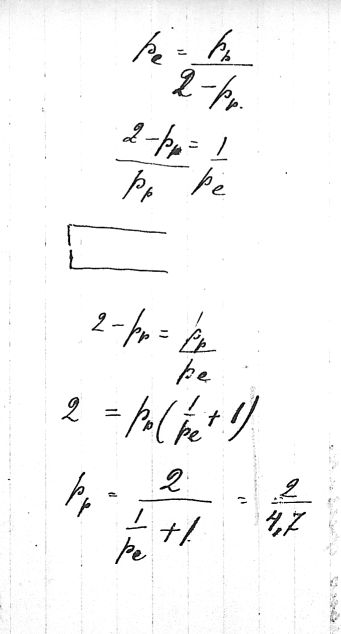 p_e = p_p / (2 - p_p.)
(2 - p_p) / p_p = 1 / p_e
2 - p_p = p_p / p_e
2 = p_p (1/p_e + 1)
p_p = 2 / (1/p_e + 1) = 2 / 4,7